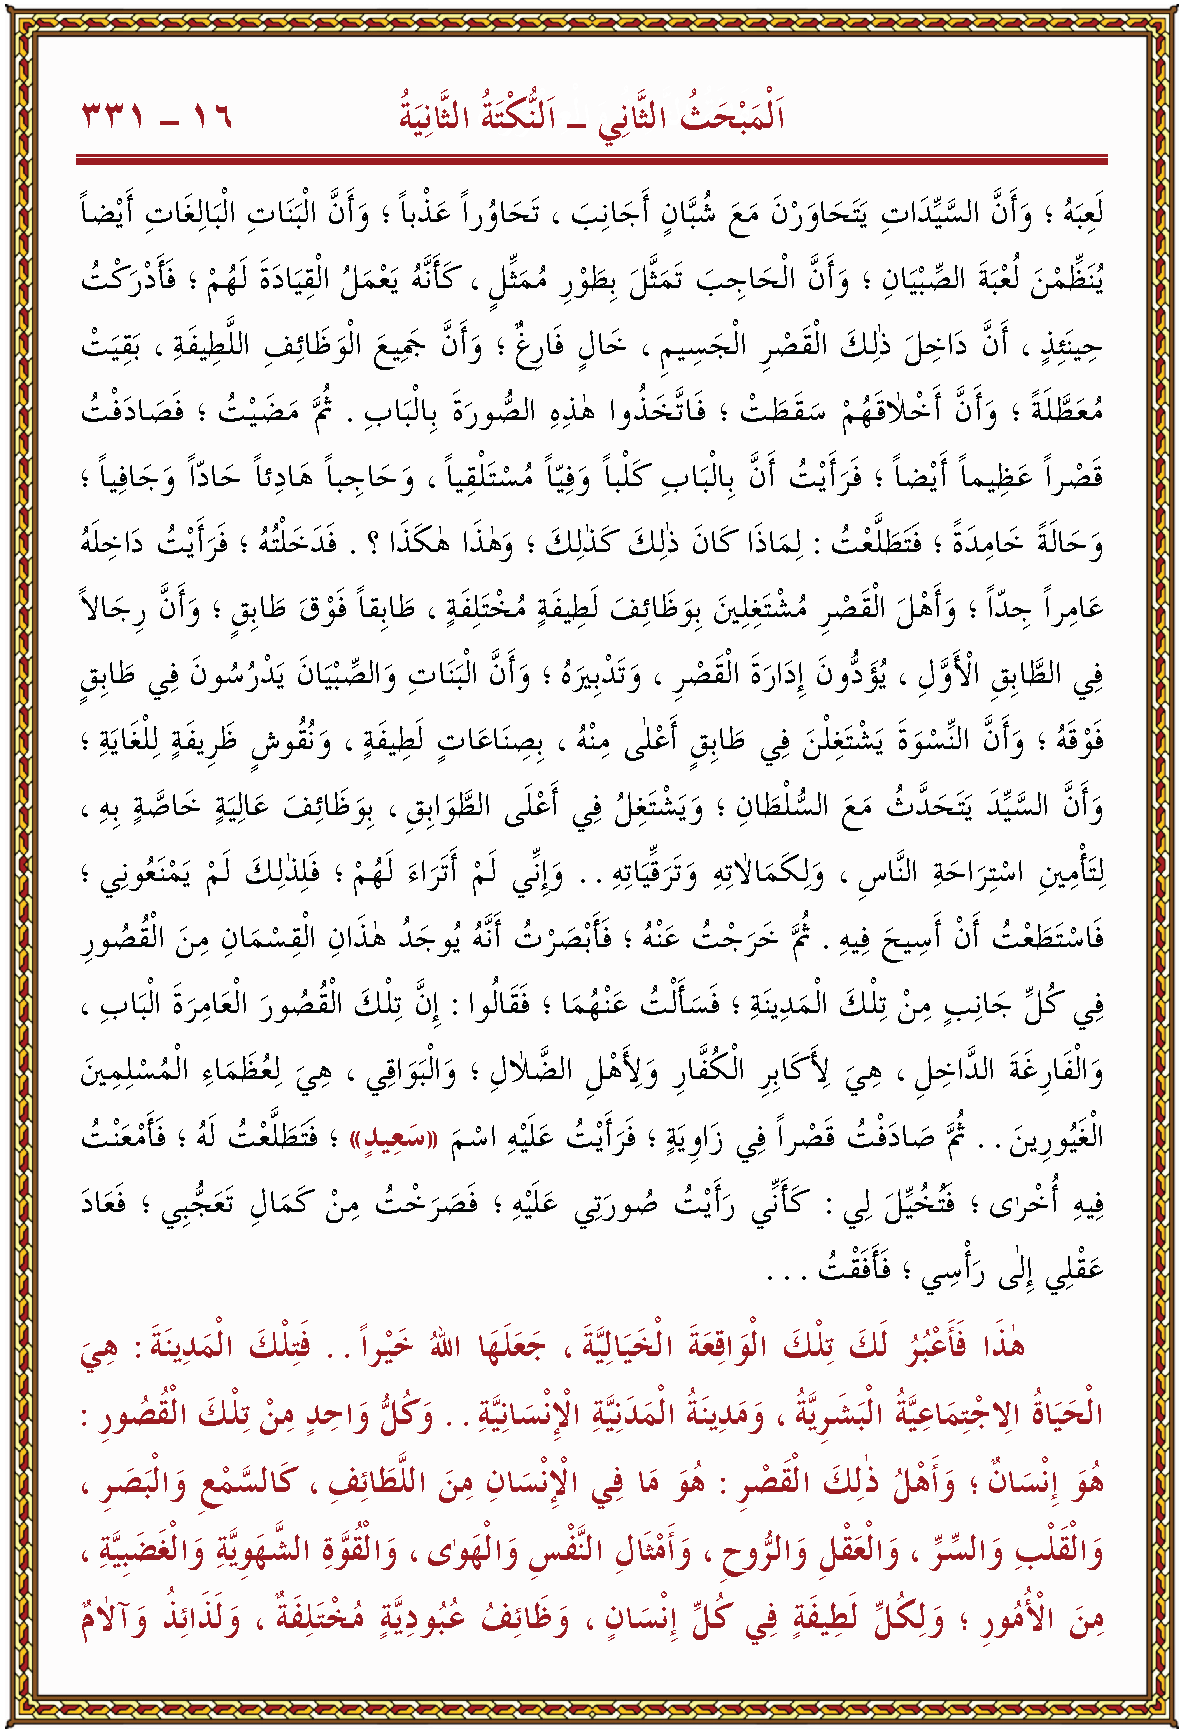 اَلْمَبْحَثُ الثَّانِي ـ اَلنُّكْتَةُ الثَّانِيَةُ ١٦ ـ ٣٣١
لَعِبَهُ ؛ وَأَنَّ السَّيِّدَاتِ يَتَحَاوَرْنَ مَعَ شُبَّانٍ أَجَانِبَ ، تَحَاوُراً عَذْباً ؛ وَأَنَّ الْبَنَاتِ الْبَالِغَاتِ أَيْضاً
يُنَظِّمْنَ لُعْبَةَ الصِّبْيَانِ ؛ وَأَنَّ الْحَاجِبَ تَمَثَّلَ بِطَوْرِ مُمَثِّلٍ ، كَأَنَّهُ يَعْمَلُ الْقِيَادَةَ لَهُمْ ؛ فَأَدْرَكْتُ
حِينَئِذٍ ، أَنَّ دَاخِلَ ذٰلِكَ الْقَصْرِ الْجَسِيمِ ، خَالٍ فَارِغٌ ؛ وَأَنَّ جَمِيعَ الْوَظَائِفِ اللَّطِيفَةِ ، بَقِيَتْ
مُعَطَّلَةً ؛ وَأَنَّ أَخْلَاقَهُمْ سَقَطَتْ ؛ فَاتَّخَذُوا هٰذِهِ الصُّورَةَ بِالْبَابِ . ثُمَّ مَضَيْتُ ؛ فَصَادَفْتُ
قَصْراً عَظِيماً أَيْضاً ؛ فَرَأَيْتُ أَنَّ بِالْبَابِ كَلْباً وَفِيّاً مُسْتَلْقِياً ، وَحَاجِباً هَادِئاً حَادّاً وَجَافِياً ؛
وَحَالَةً خَامِدَةً ؛ فَتَطَلَّعْتُ : لِمَاذَا كَانَ ذٰلِكَ كَذٰلِكَ ؛ وَهٰذَا هٰكَذَا ؟ . فَدَخَلْتُهُ ؛ فَرَأَيْتُ دَاخِلَهُ
عَامِراً جِدّاً ؛ وَأَهْلَ الْقَصْرِ مُشْتَغِلِينَ بِوَظَائِفَ لَطِيفَةٍ مُخْتَلِفَةٍ ، طَابِقاً فَوْقَ طَابِقٍ ؛ وَأَنَّ رِجَالاً
فِي الطَّابِقِ الْأَوَّلِ ، يُؤَدُّونَ إِدَارَةَ الْقَصْرِ ، وَتَدْبِيرَهُ ؛ وَأَنَّ الْبَنَاتِ وَالصِّبْيَانَ يَدْرُسُونَ فِي طَابِقٍ
فَوْقَهُ ؛ وَأَنَّ النِّسْوَةَ يَشْتَغِلْنَ فِي طَابِقٍ أَعْلٰى مِنْهُ ، بِصِنَاعَاتٍ لَطِيفَةٍ ، وَنُقُوشٍ ظَرِيفَةٍ لِلْغَايَةِ ؛
وَأَنَّ السَّيِّدَ يَتَحَدَّثُ مَعَ السُّلْطَانِ ؛ وَيَشْتَغِلُ فِي أَعْلَى الطَّوَابِقِ ، بِوَظَائِفَ عَالِيَةٍ خَاصَّةٍ بِهِ ،
لِتَأْمِينِ اسْتِرَاحَةِ النَّاسِ ، وَلِكَمَالَاتِهِ وَتَرَقِّيَاتِهِ . . وَإِنِّي لَمْ أَتَرَاءَ لَهُمْ ؛ فَلِذٰلِكَ لَمْ يَمْنَعُونِي ؛
فَاسْتَطَعْتُ أَنْ أَسِيحَ فِيهِ . ثُمَّ خَرَجْتُ عَنْهُ ؛ فَأَبْصَرْتُ أَنَّهُ يُوجَدُ هٰذَانِ الْقِسْمَانِ مِنَ الْقُصُورِ
فِي كُلِّ جَانِبٍ مِنْ تِلْكَ الْمَدِينَةِ ؛ فَسَأَلْتُ عَنْهُمَا ؛ فَقَالُوا : إِنَّ تِلْكَ الْقُصُورَ الْعَامِرَةَ الْبَابِ ،
وَالْفَارِغَةَ الدَّاخِلِ ، هِيَ لِأَكَابِرِ الْكُفَّارِ وَلِأَهْلِ الضَّلَالِ ؛ وَالْبَوَاقِي ، هِيَ لِعُظَمَاءِ الْمُسْلِمِينَ
الْغَيُورِينَ . . ثُمَّ صَادَفْتُ قَصْراً فِي زَاوِيَةٍ ؛ فَرَأَيْتُ عَلَيْهِ اسْمَ «سَعِيدٍ» ؛ فَتَطَلَّعْتُ لَهُ ؛ فَأَمْعَنْتُ
فِيهِ أُخْرٰى ؛ فَتُخُيِّلَ لِي : كَأَنِّي رَأَيْتُ صُورَتِي عَلَيْهِ ؛ فَصَرَخْتُ مِنْ كَمَالِ تَعَجُّبِي ؛ فَعَادَ
عَقْلِي إِلٰى رَأْسِي ؛ فَأَفَقْتُ . . .
هٰذَا فَأَعْبُرُ لَكَ تِلْكَ الْوَاقِعَةَ الْخَيَالِيَّةَ ، جَعَلَهَا اللهُ خَيْراً . . فَتِلْكَ الْمَدِينَةَ : هِيَ
الْحَيَاةُ الِاجْتِمَاعِيَّةُ الْبَشَرِيَّةُ ، وَمَدِينَةُ الْمَدَنِيَّةِ الْإِنْسَانِيَّةِ . . وَكُلُّ وَاحِدٍ مِنْ تِلْكَ الْقُصُورِ :
هُوَ إِنْسَانٌ ؛ وَأَهْلُ ذٰلِكَ الْقَصْرِ : هُوَ مَا فِي الْإِنْسَانِ مِنَ اللَّطَائِفِ ، كَالسَّمْعِ وَالْبَصَرِ ،
وَالْقَلْبِ وَالسِّرِّ ، وَالْعَقْلِ وَالرُّوحِ ، وَأَمْثَالِ النَّفْسِ وَالْهَوٰى ، وَالْقُوَّةِ الشَّهَوِيَّةِ وَالْغَضَبِيَّةِ ،
مِنَ الْأُمُورِ ؛ وَلِكُلِّ لَطِيفَةٍ فِي كُلِّ إِنْسَانٍ ، وَظَائِفُ عُبُودِيَّةٍ مُخْتَلِفَةٌ ، وَلَذَائِذُ وَآلَامٌ